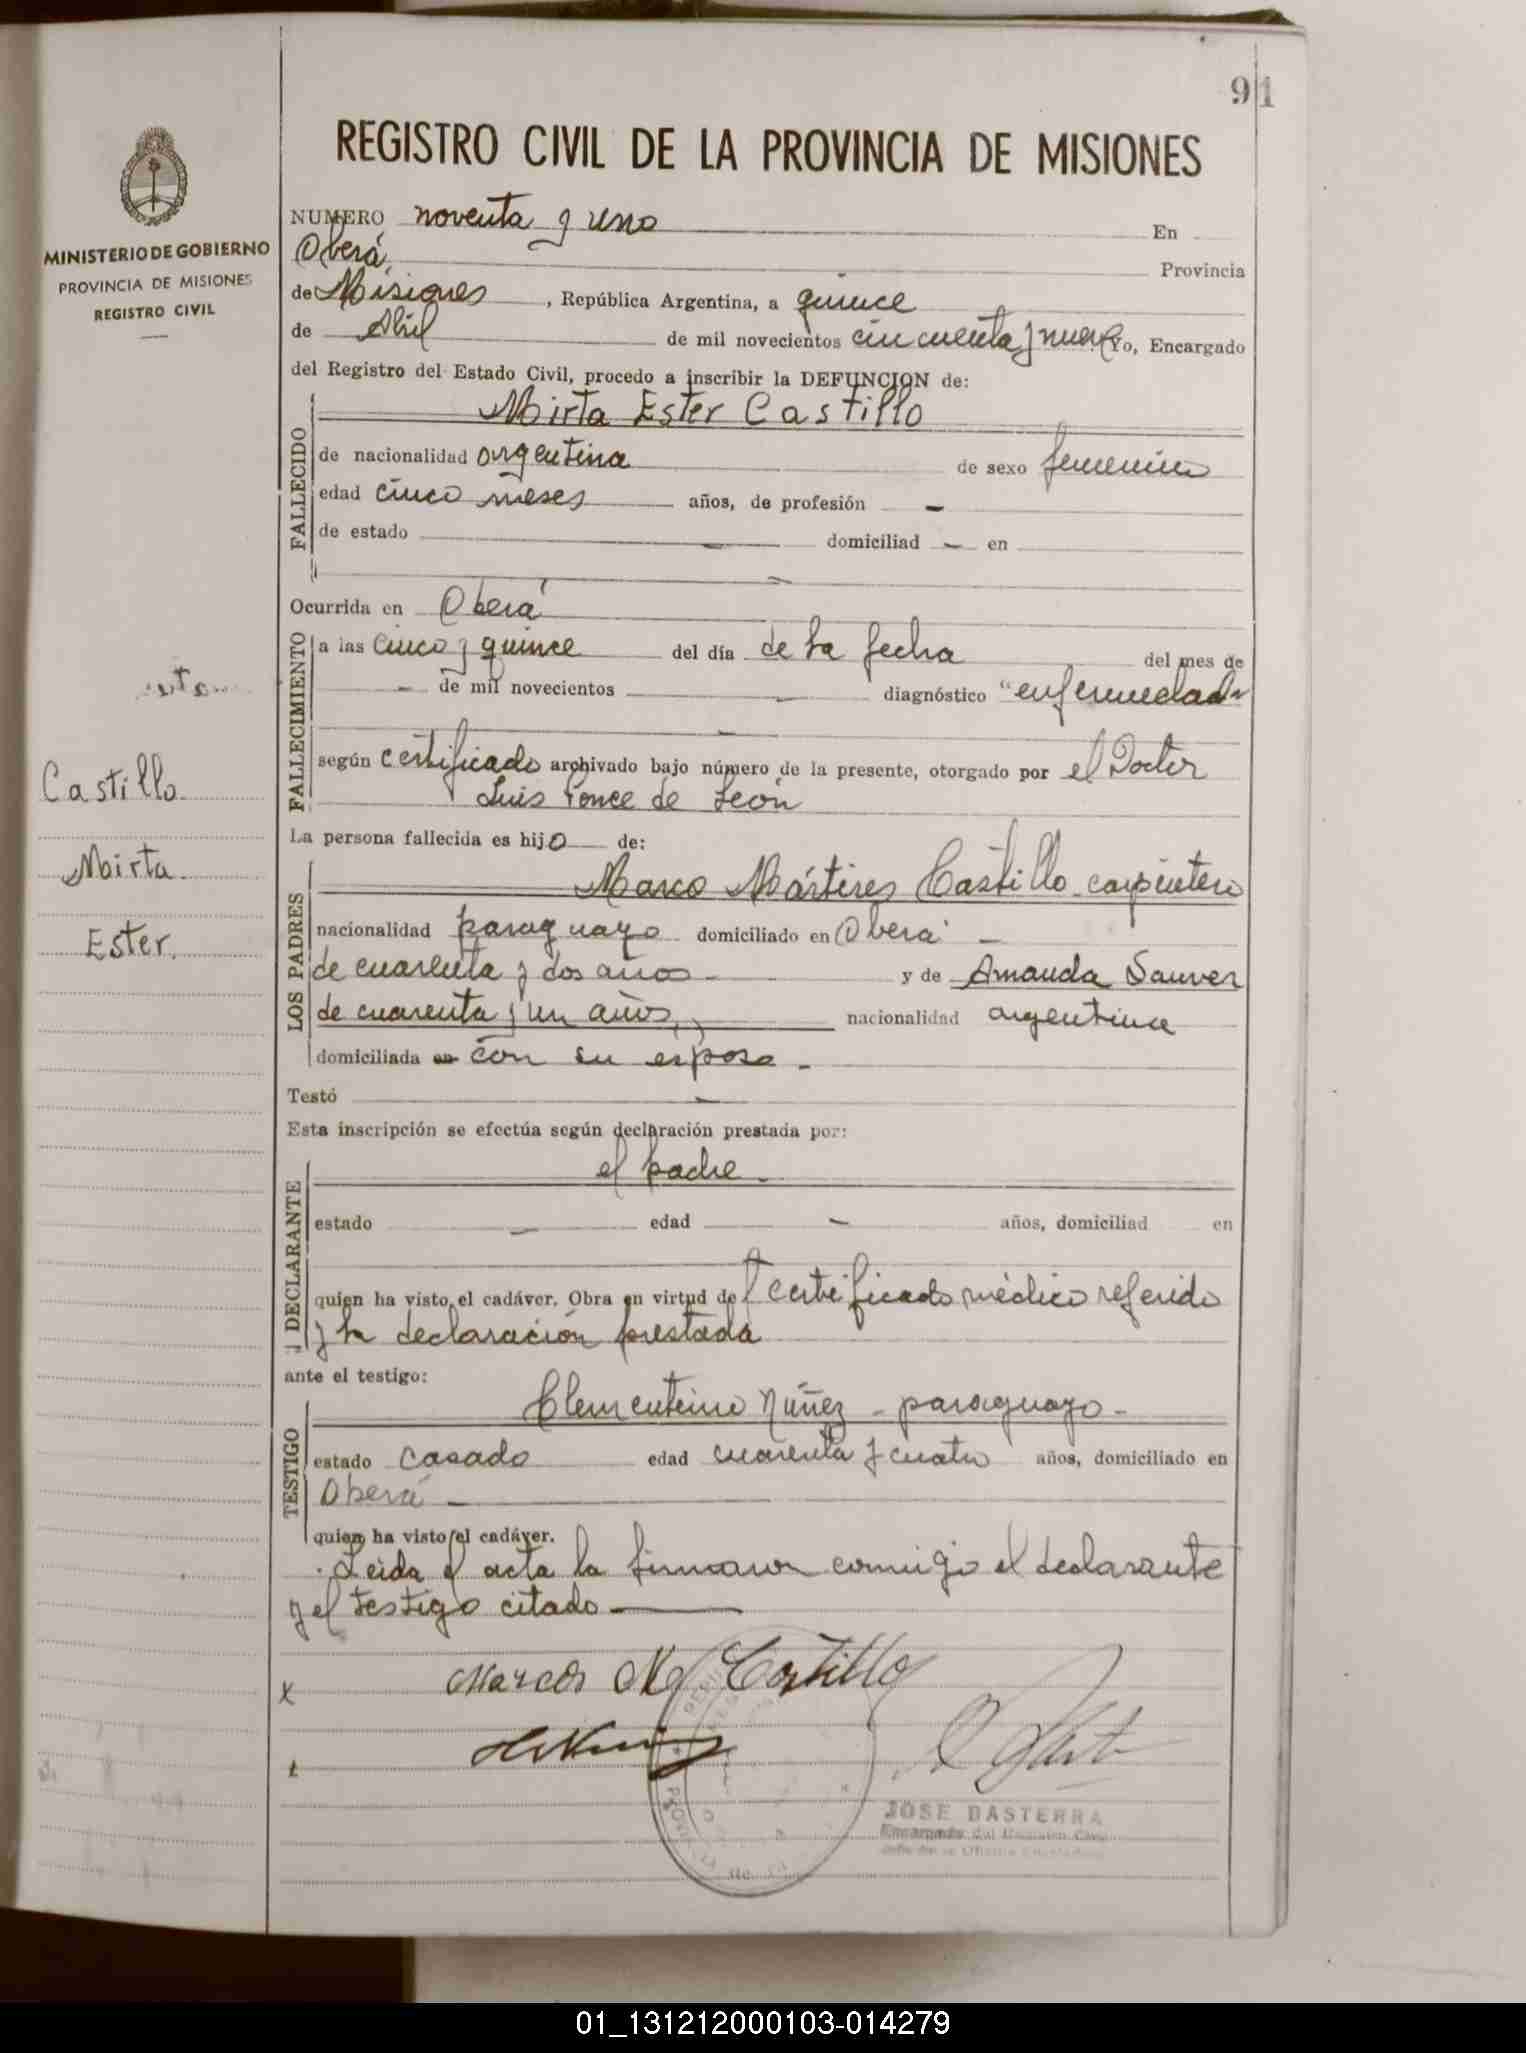 91
REGISTRO CIVIL DE LA PROVINCIA DE MISIONES
MINISTERIO DE GOBIERNO
PROVINCIA DE MISIONES
REGISTRO CIVIL
NUMERO noventa y uno En
Oberá, Provincia
de Misiones, República Argentina, a quince
de Abril de mil novecientos cincuenta y nueve Yo, Encargado
del Registro del Estado Civil, procedo a inscribir la DEFUNCION de:
Mirta Ester Castillo
FALLECIDO
de nacionalidad argentina de sexo femenino
edad cinco meses años, de profesión -
de estado - domiciliad - en
-
Ocurrida en Oberá
FALLECIMIENTO
a las cinco y quince del día de la fecha del mes de
- de mil novecientos - diagnóstico "enfermedad"
-
según certificado archivado bajo número de la presente, otorgado por el Doctor
Luis Ponce de León
La persona fallecida es hijo de:
LOS PADRES
Marco Mártires Castillo carpintero
nacionalidad paraguayo domiciliado en Oberá -
de cuarenta y dos años - y de Amanda Sauver
de cuarenta y un años, nacionalidad argentina
domiciliada en con su esposo -
Testó -
Esta inscripción se efectúa según declaración prestada por:
el padre.
DECLARANTE
estado - edad - años, domiciliad en
quien ha visto el cadáver. Obra en virtud del certificado médico referido
y la declaración prestada
ante el testigo:
Clementino Núñez - paraguayo -
TESTIGO
estado casado edad cuarenta y cuatro años, domiciliado en
Oberá -
quien ha visto el cadáver.
Leida el acta la firmaron conmigo el declarante
y el testigo citado
Castillo
Mirta
Ester.
x Marcos M Castillo
JOSE BASTERRA
Encargado del Registro Civil
01_131212000103-014279